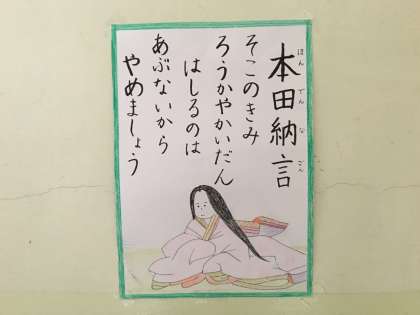 本田納言
ほんでんなごん
そこのきみ
ろうかやかいだん
はしるのは
あぶないから
やめましょう